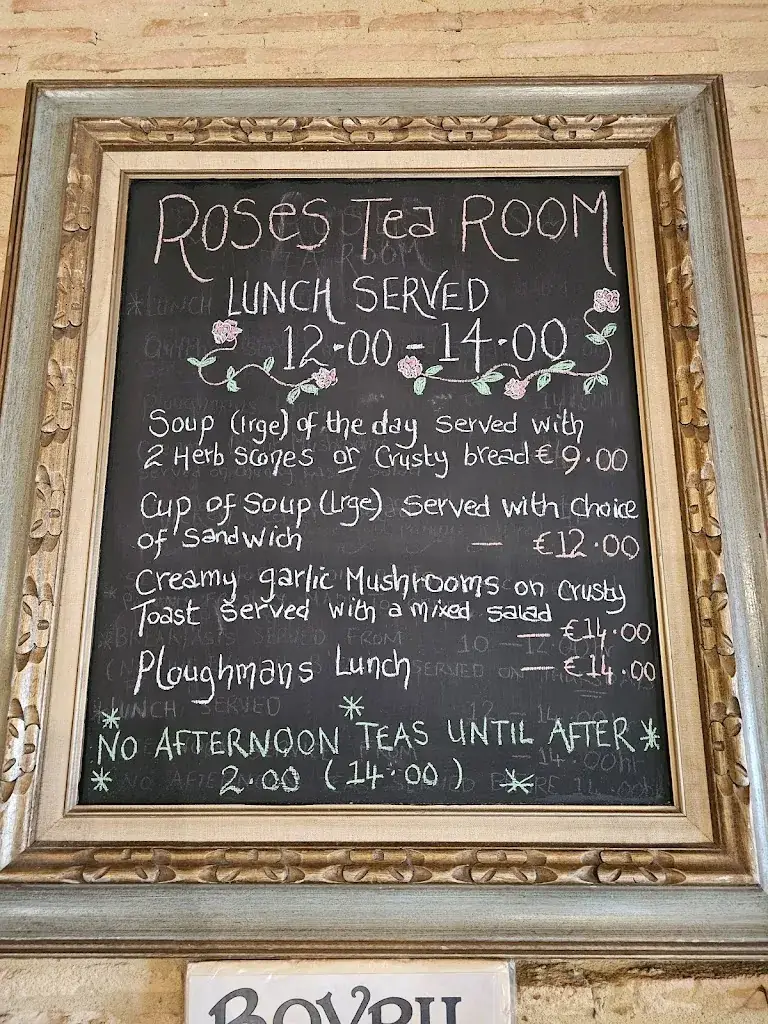 Roses Tea Room
LUNCH SERVED
12.00 - 14.00
Soup (lrge) of the day served with
2 Herb Scones or Crusty bread € 9.00
Cup of Soup (Lrge) Served with choice
of Sandwich — €12.00
Creamy garlic Mushrooms on crusty
Toast served with a mixed salad
— €14.00
Ploughmans Lunch — €14.00
* * NO AFTERNOON TEAS UNTIL AFTER *
* 2.00 (14.00) *
BOVRIL